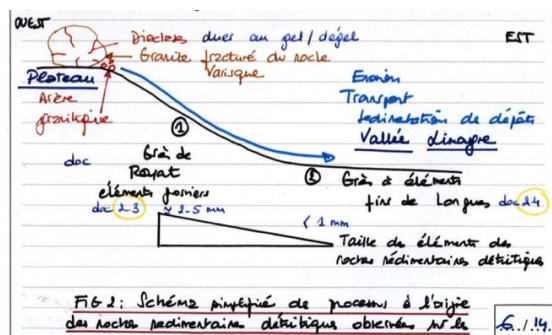 OUEST
EST
Diaclases dues au gel/dégel
Granite fracturé du socle
Varisque
Plateau
Arène
granitique
Erosion
Transport
sédimentation de dépôts
Vallée Limagne
①
doc
Grès de
Royat
éléments grossiers
doc 2.3
②
Grès à éléments
fins de Longues doc 2.4
≈ 2.5 mm
< 1 mm
Taille des éléments des
roches sédimentaires détritiques
FIG 2: Schéma simplifié de processus à l'origine
des roches sédimentaires détritiques observées
6/14